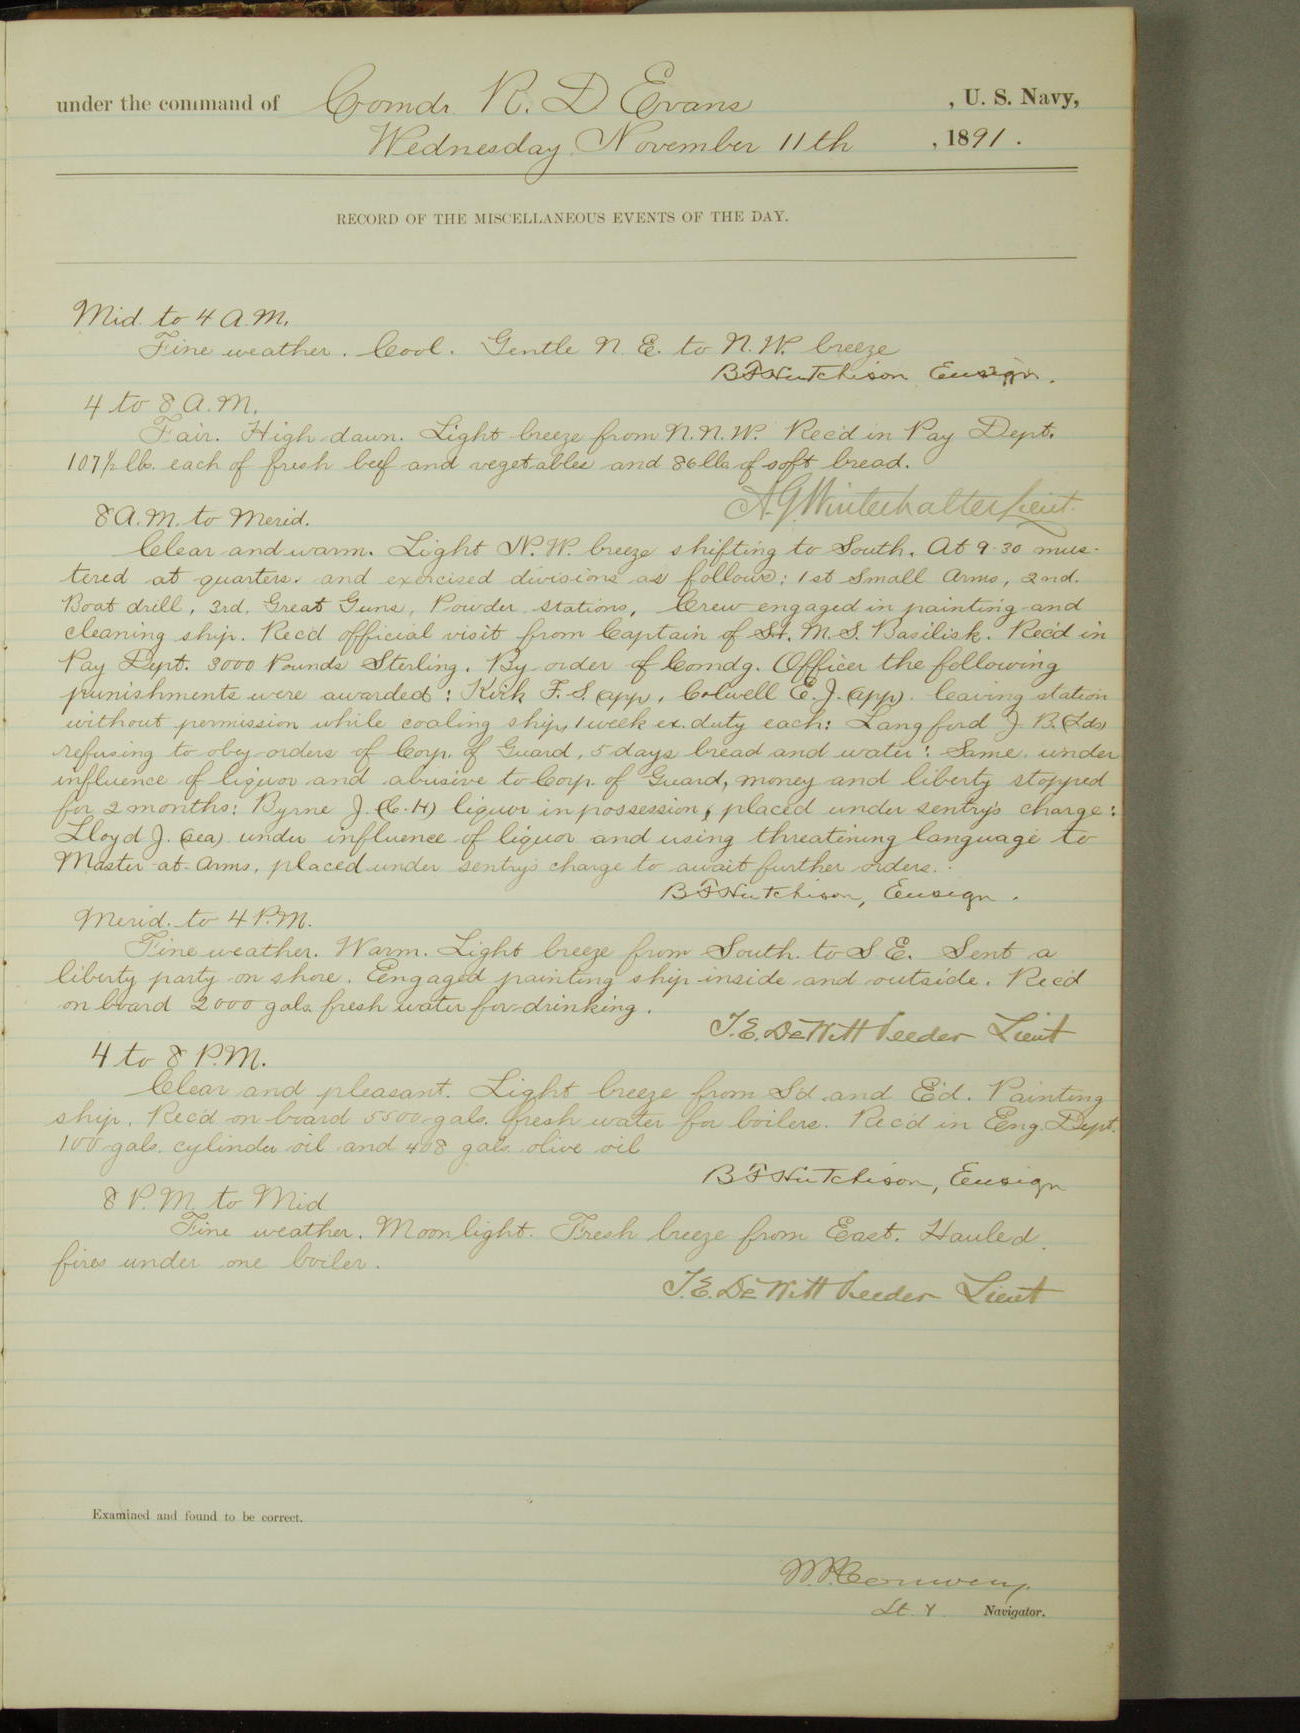 under the command of Comdr. R. D Evans, U. S. Navy,
Wednesday November 11th, 1891.
RECORD OF THE MISCELLANEOUS EVENTS OF THE DAY.
Mid. to 4 A.M.
Fine weather. Cool. Gentle N. E. to N. W. breeze
B F Hutchison Ensign.
4 to 8 A.M.
Fair. High dawn. Light breeze from N. N. W. Rec'd in Pay Dept.
107½ lbs. each of fresh beef and vegetables and 86 lbs of soft bread.
A. G. Winterhalter Lieut.
8 A.M. to Merid.
Clear and warm. Light N. W. breeze shifting to South. At 9.30 mus-
tered at quarters. and exercised divisions as follows: 1st Small Arms, 2nd.
Boat drill, 3rd. Great Guns, Powder stations, Crew engaged in painting and
cleaning ship. Rec'd official visit from Captain of H. M. S. Basilisk. Rec'd in
Pay Dept. 3000 Pounds Sterling. By order of Comdg. Officer the following
punishments were awarded: Kirk F. S. (app), Colwell E. J. (app). leaving station
without permission while coaling ship, 1 week ex. duty each: Langford J. B. (Lds)
refusing to obey orders of Corp. of Guard, 5 days bread and water: Same. under
influence of liquor and abusive to Corp. of Guard, money and liberty stopped
for 2 months: Byrne J. (C.H) liquor in possession, placed under sentry's charge:
Lloyd J. (sea) under influence of liquor and using threatining language to
Master-at-Arms, placed under sentry's charge to await further orders.
B F Hutchison, Ensign.
Merid. to 4 P.M.
Fine weather. Warm. Light breeze from South to S E. Sent a
liberty party on shore. Engaged painting ship inside and outside. Rec'd
on board 2000 gals fresh water for drinking.
T. E. DeWitt Veeder Lieut
4 to 8 P.M.
Clear and pleasant. Light breeze from S'd and E'd. Painting
ship. Rec'd on board 5500 gals. fresh water for boilers. Rec'd in Eng. Dept.
100 gals. cylinder oil and 408 gals olive oil
B F Hutchison, Ensign
8 P.M. to Mid
Fine weather. Moonlight. Fresh breeze from East. Hauled
fires under one boiler.
T. E. DeWitt Veeder Lieut
Examined and found to be correct.
Lt. Navigator.